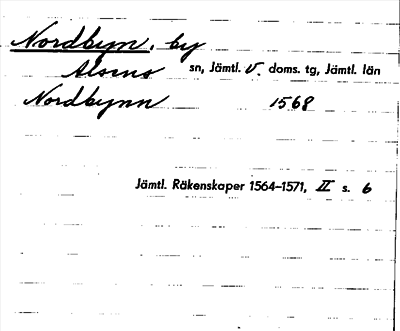 Nordbyn, by
Alsens sn, Jämtl. V. doms. tg, Jämtl. län
Nordbynn 1568
Jämtl. Räkenskaper 1564–1571, II s. 6